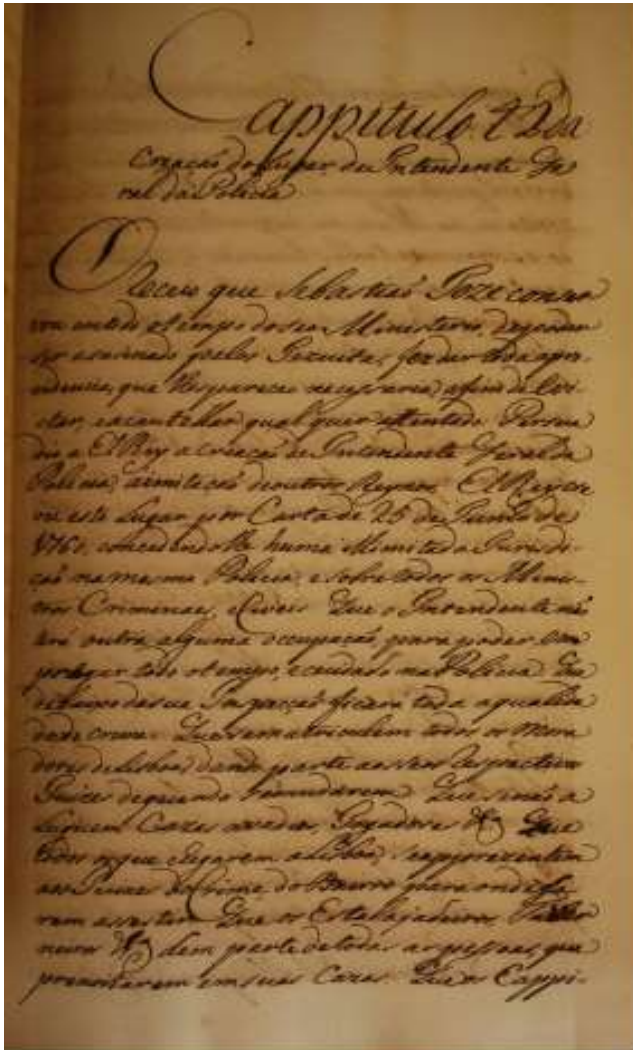 Cappitulo 42 da
Creaçaõ do Lugar de Intendente Ge
ral da Policia
O Receio que Sebastiaõ Joze conser
vou em todo o tempo do seu Ministerio, de poder
ser asasinado pelos Jezuitas, fez dar toda a pro-
videncia, que lhe parecia necessaria, afim de evi-
tar, e acautellar qualquer attentado. Persua
dio a El Rey a creaçaõ de Intendente Geral da
Policia, a imitaçaõ de outros Reynos. El Rey cre
ou este Lugar por Carta de 25 de Junho de
1760, concedendo lhe huma illimitada Jurisdi-
çaõ na mesma Policia, e sobre todos os Minis-
tros Criminaes, e Civeis. Que o Intendente naõ
terá outra alguma occupaçaõ, para poder em
pregar todo o tempo, e cuidado na Policia. Que
debaixo da sua Inspecçaõ ficará toda a qualida
de de crime. Que se matriculem todos os Mora
dores de Lisboa, dando parte aos seos respectivos
Juizes de quando se mudarem. Que se naõ a
luguem Cazas a vadios, Jogadores &ª Que
todos os que chegarem a Lisboa, se apprezentem
aos Juizes do Crime do Bairro para onde fo
rem assestir. Que os Estalajadeiros, Taver
neiros &ª dem parte de todas as pessoas, que
pernoitarem em suas Cazas. Que os Cappi-